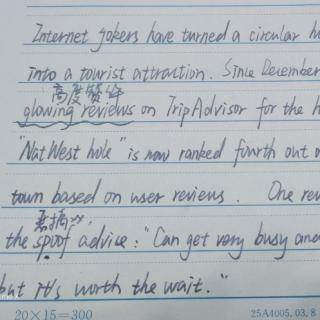 Internet jokers have turned a circular h
into a tourist attraction. Since December
高度赞许
glowing reviews on TripAdvisor for the h
"NatWest hole" is now ranked fourth out o
town based on user reviews. One rev
the spoof advice: "Can get very busy and
but it's worth the wait."
20×15=300
25A4005.03.8